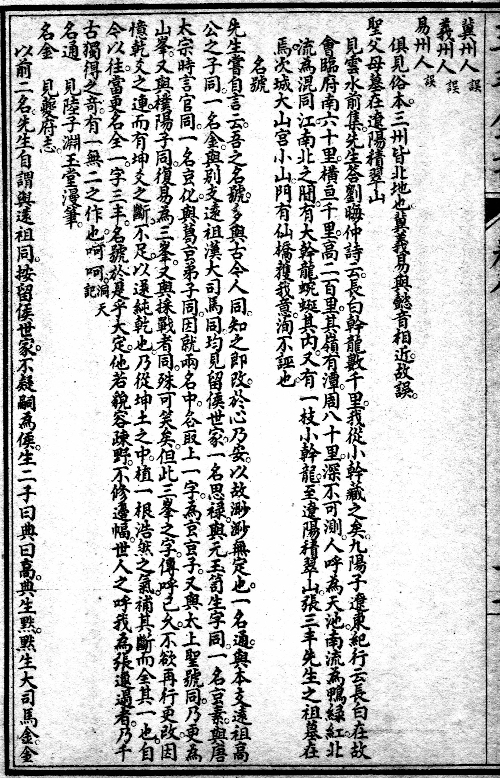 冀州人 誤
義州人 誤
易州人 誤
俱見俗本。三州皆北地也。冀義易與懿音相近。故誤。
聖父母墓在遼陽積翠山
見雲水前集。先生答劉晦仲詩云。長白幹龍數千里。我從小幹藏之矣。九陽子遼東紀行云。長白在故
會臨府南六十里。橫亘千里。高二百里。其嶺有潭。周八十里。深不可測。人呼為天池。南流為鴨綠紅。北
流為混同江。南北之間。有大幹龍蜿蜒其內。又有一枝小幹龍。至遼陽積翠山。張三丰先生之祖墓在
焉。次城大山宮小山。門有仙橋護我意。洵不誣也。
名號
先生嘗自言云。吾之名號。多與古今人同。知之即改。於心乃安。以故渺渺無定也。一名通。與本支遠祖高
公之子同。一名金。與別支遠祖漢大司馬同。均見留侯世家。一名思祿。與元玉笥生字同。一名玄素。與唐
太宗時言官同。一名玄化。與葛玄弟子同。因就兩名中各取上一字為玄玄子。又與太上聖號同。乃更為
山峯。又與樸陽子同。復易為三峯。又與採戰者同。殊可笑矣。但此三峯之字。傳呼已久。不欲再行更改。因
憶乾爻之連。而有坤爻之斷。不足以還純乾也。乃從坤土之中。植一根浩然之氣。補其斷而全其一也。自
今以往。當更名全一字三丰。名號於是乎大定。他若貌容疎野。不修邊幅。世人之呼我為張邋遢者。乃千
古獨得之奇。有一無二之作也。呵呵。洞天記
名通 見陸子淵玉堂漫筆。
名金 見夔府志。
以前二名。先生自謂與遠祖同。按留侯世家。不疑嗣為侯。生二子。曰典曰高。典生默。默生大司馬金。金